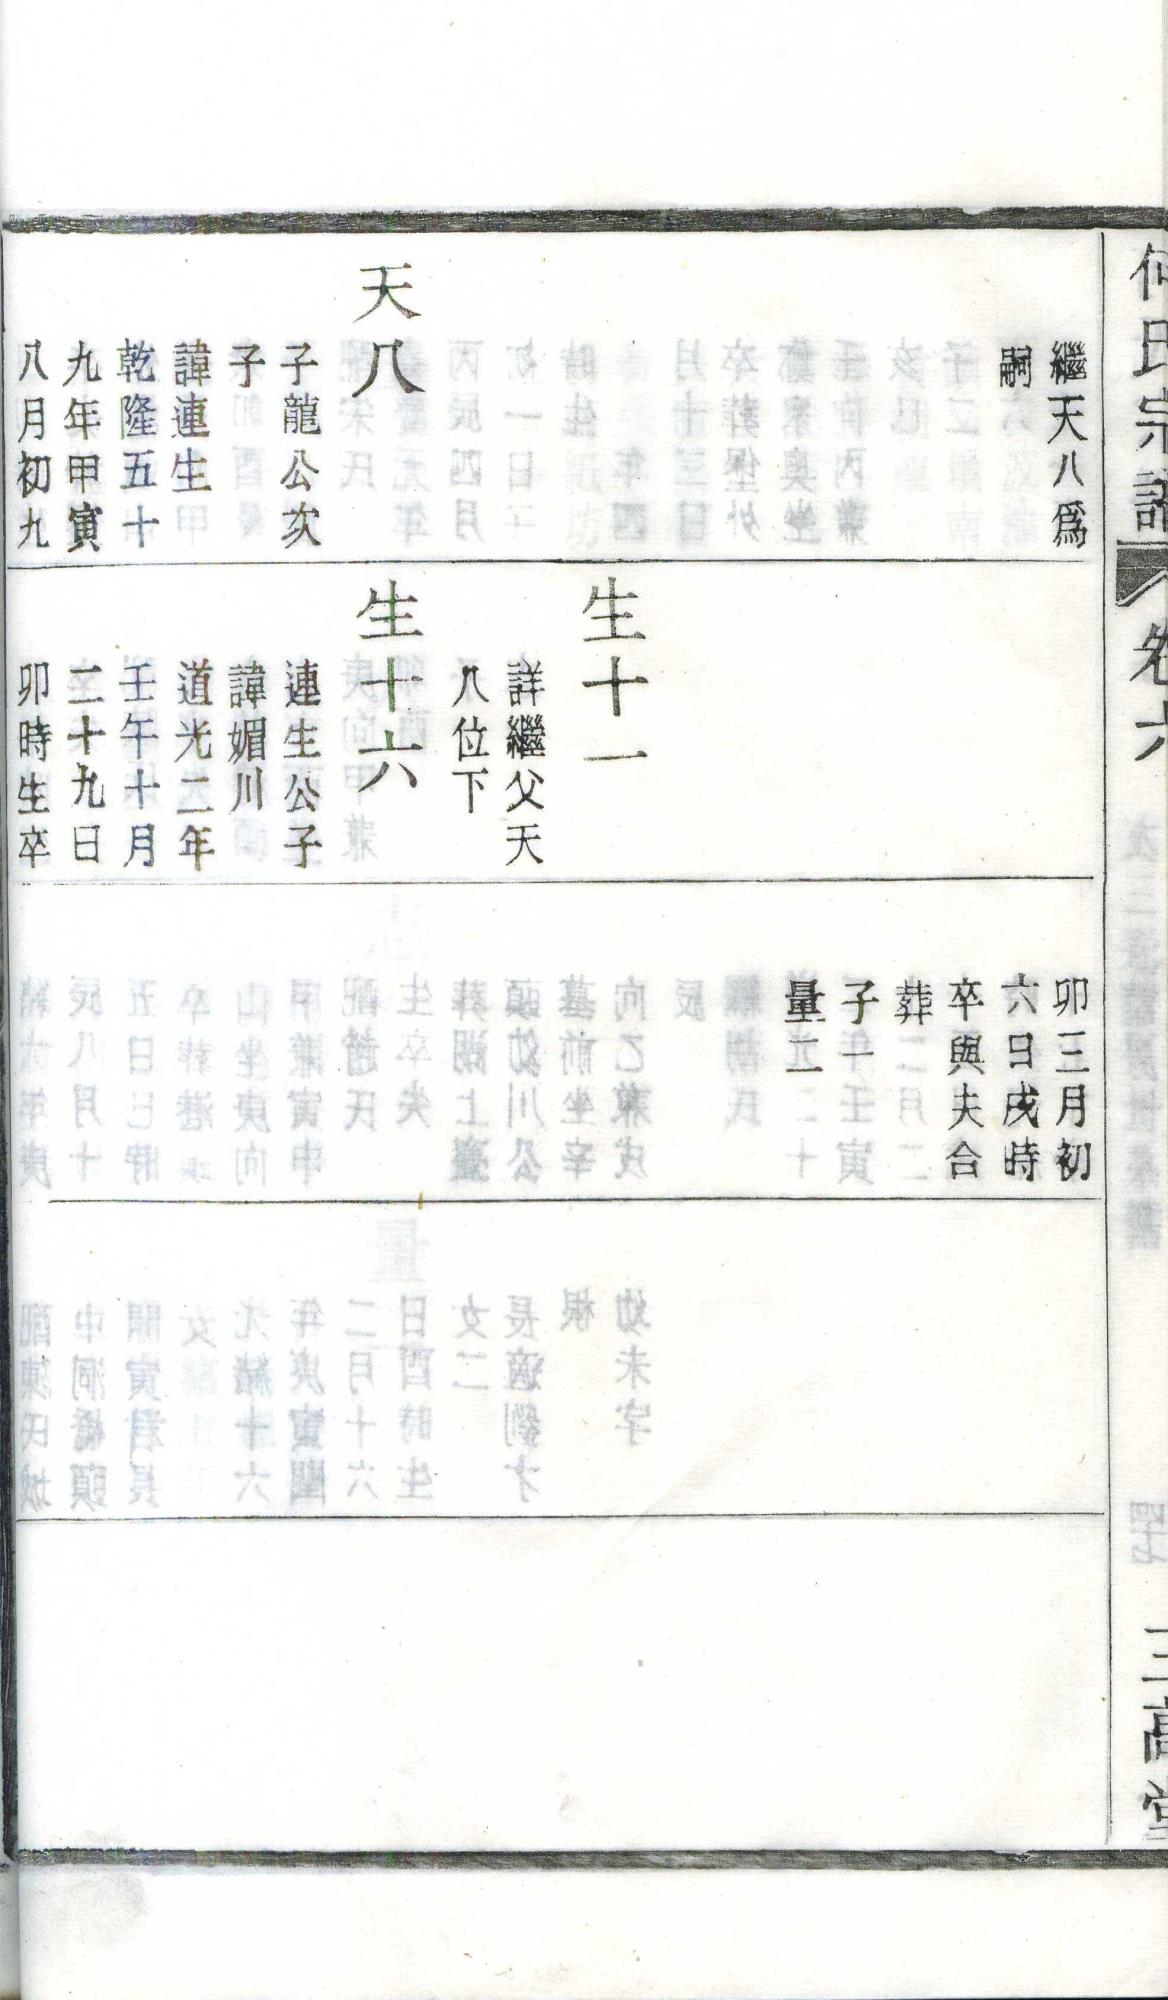 何氏宗譜
卷六
三高堂
繼天八爲
嗣
天八
子龍公次
子
諱連生
乾隆五十
九年甲寅
八月初九
生十一
詳繼父天
八位下
生十六
連生公子
諱媚川
道光二年
壬午十月
二十九日
卯時生卒
卯三月初
六日戌時
卒與夫合
葬
子一
量二